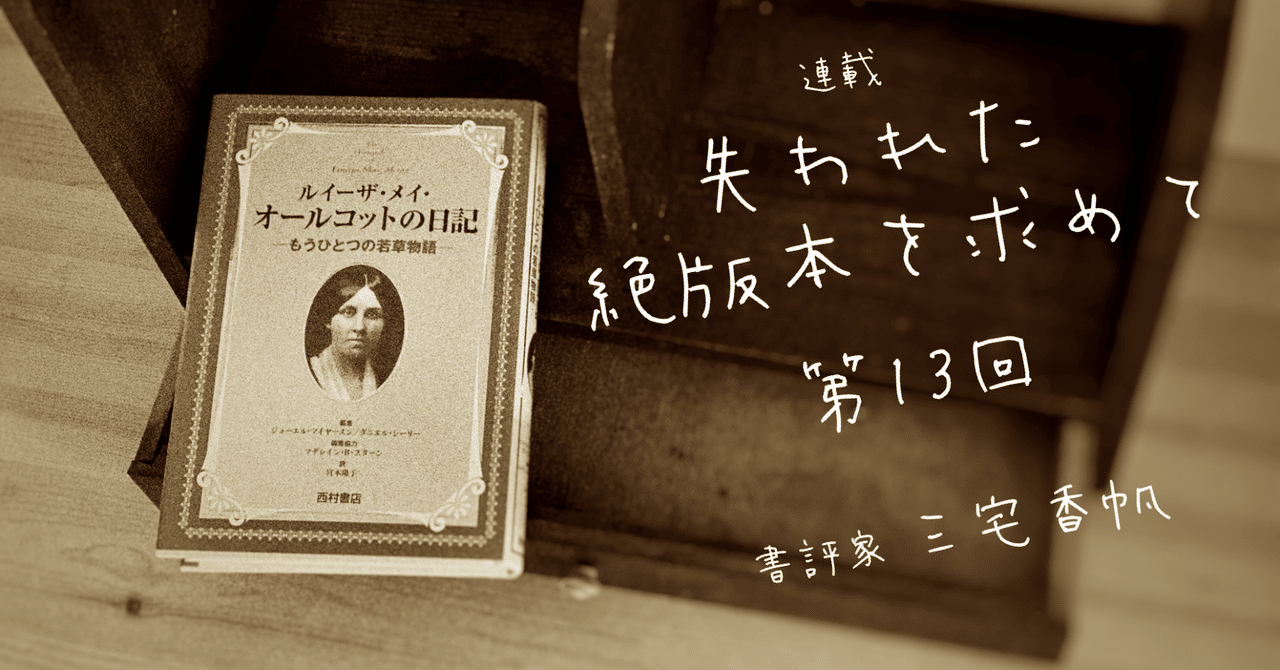 ルイーザ・メイ・
オールコットの日記
―もうひとつの若草物語―
編集
ジョーエル・マイヤースン/ダニエル・シーリー
編集協力
マデレイン・B・スターン
訳
宮木陽子
西村書店
連載
失われた
絶版本を求めて
第13回
書評家 三宅香帆